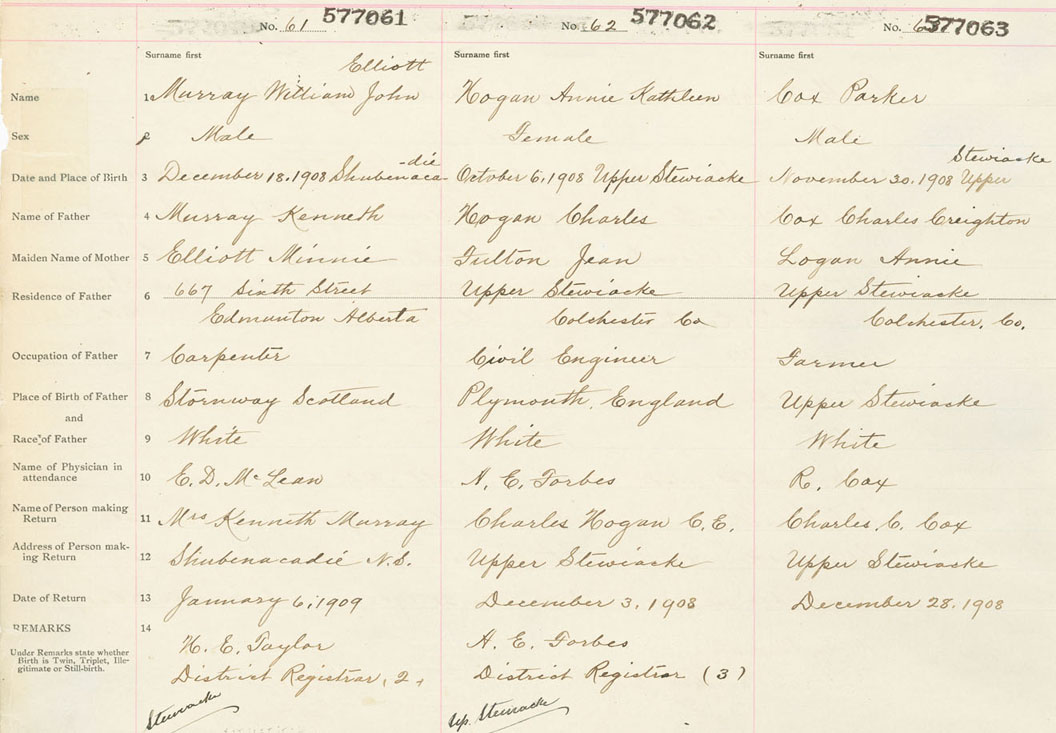 No. 61 577061 No. 62 577062 No. 577063
Surname first Surname first Surname first
Elliott
Name 1 Murray William John Hogan Annie Kathleen Cox Parker
Sex 2 Male Female Male
-die Stewiacke
Date and Place of Birth 3 December 18. 1908 Shubenaca- October 6, 1908 Upper Stewiacke November 30. 1908 Upper
Name of Father 4 Murray Kenneth Hogan Charles Cox Charles Creighton
Maiden Name of Mother 5 Elliott Minnie Fulton Jean Logan Annie
Residence of Father 6 667 Sixth Street Upper Stewiacke Upper Stewiacke
Edmunton Alberta Colchester Co Colchester. Co.
Occupation of Father 7 Carpenter Civil Engineer Farmer
Place of Birth of Father 8 Stornway Scotland Plymouth, England Upper Stewiacke
and
Race of Father 9 White White White
Name of Physician in
attendance 10 E. D. McLean A. E. Forbes R. Cox
Name of Person making
Return 11 Mrs Kenneth Murray Charles Hogan C. E. Charles. C. Cox
Address of Person mak-
ing Return 12 Shubenacadie N.S. Upper Stewiacke Upper Stewiacke
Date of Return 13 January 6, 1909 December 3, 1908 December 28, 1908
REMARKS 14
Under Remarks state whether
Birth is Twin, Triplet, Ille-
gitimate or Still-birth.
H. E. Taylor A. E. Forbes
District Registrar, 2, District Registrar (3)
Stewiacke Up. Stewiacke